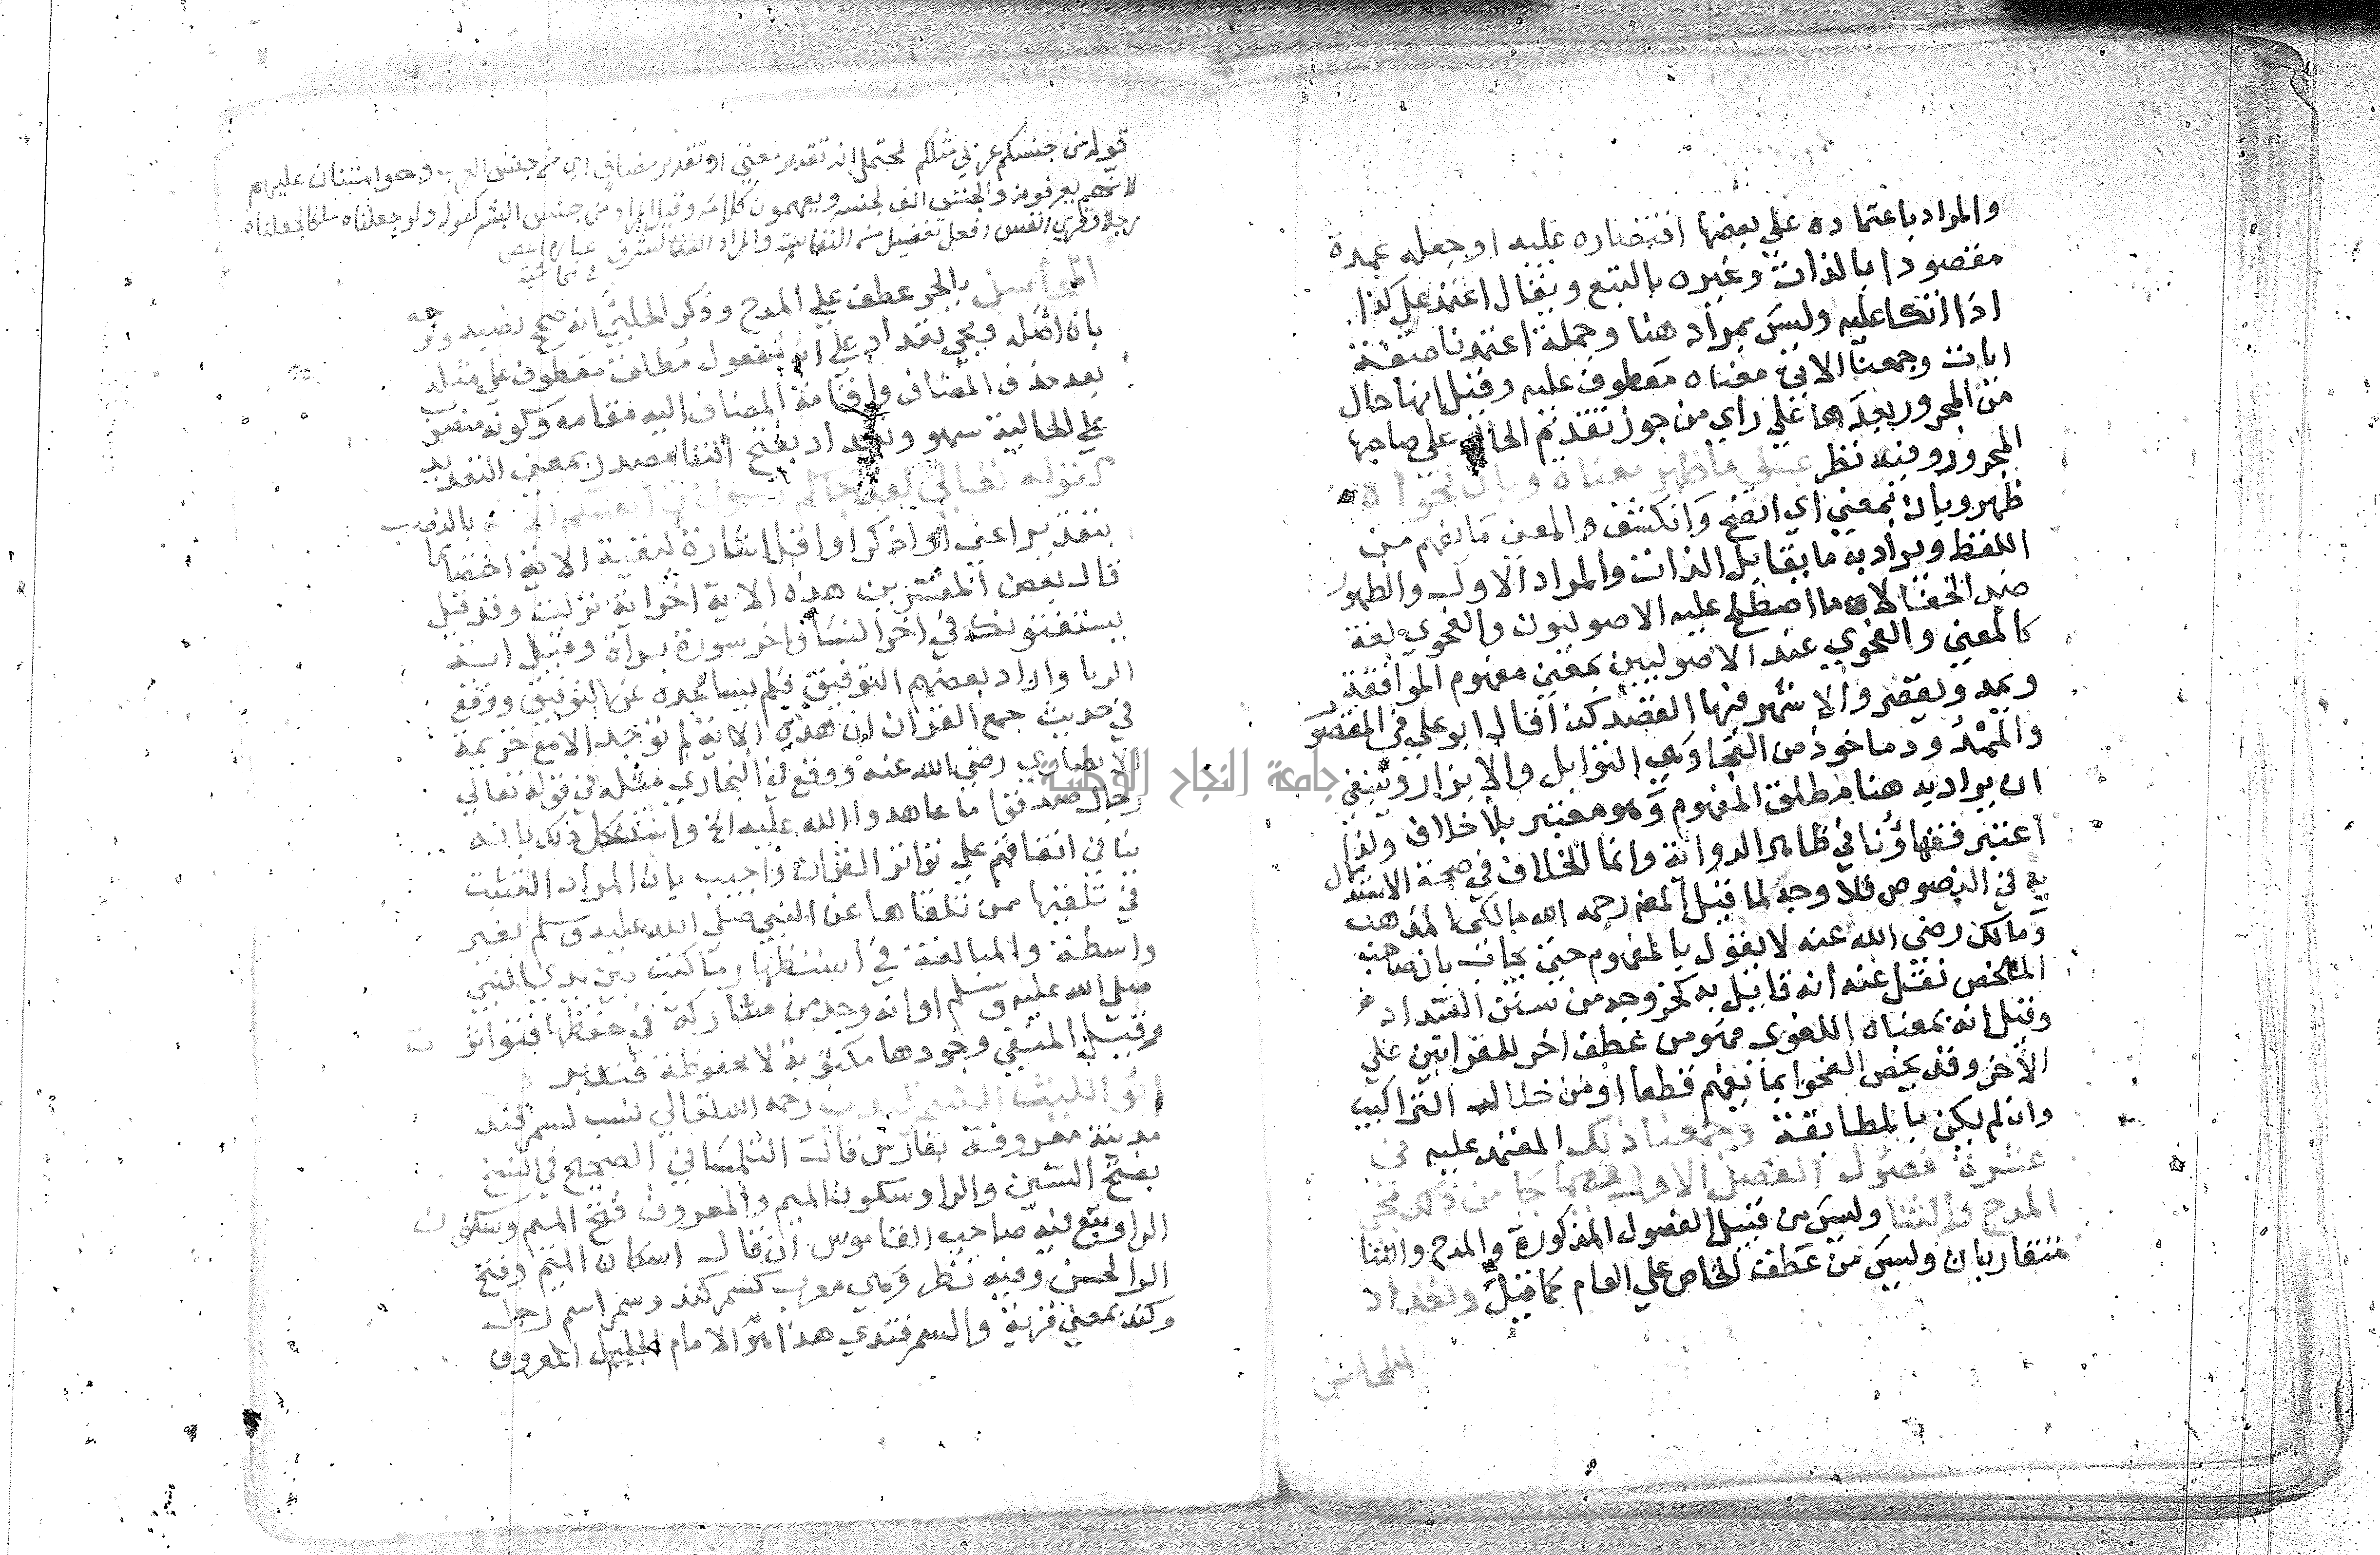 والمراد باعتماده علي بعضها اقتصاره عليه او جعله عمدة
مقصودا بالذات وغيره بالتبع ويقال اعتمد علي كذا
اذا اتكا عليه وليس بمراد هنا وجملة اعتمدنا صفة
ايات وجمعنا الاتي معناه معطوف عليه وقيل انها حال
من المجرور بعدها علي راي من جوز تقديم الحال علي صاحبها
المجرور وفيه نظر علي ما ظهر معناه وبان فحواه
ظهر وبان بمعني اي اتضح وانكشف والمعني ما يفهم من
اللفظ ويراد به ما يقابل الذات والمراد الاول والظهور
ضد الخفا لا ما اصطلح عليه الاصوليون والفحوي لغة
كالمعني والفحوي عند الاصوليين بمعني مفهوم الموافقة
ويمد ويقصر والاشهر فيها القصد كذا قال ابو علي في المقصور
والممدود وماخوذ من الفحا وهي التوابل والابزار وينبغي
ان يراد به هنا مطلق المفهوم وهو معتبر بلا خلاف ولذا
اعتبر فقهاؤنا في ظاهر الرواية وانما الخلاف في صحة الاستدلال
به في النصوص فلا وجه لما قيل المص رحمه الله مالكي المذهب
ومالك رضي الله عنه لا يقول بالمفهوم حتي يجاب بان صاحب
الملخص نقل عنه انه قايل به كخروجه من سنن السداد
وقيل انه بمعناه اللغوي فهو من عطف اخر للقراتين علي
الاخر وقد يخص الفحوا بما يفهم قطعا او من خلال التراكيب
وان لم يكن بالمطابقة وجمعنا ذلك المعتمد عليه في
عشرة فصول الفصل الاول فيما جا من ذلك مجي
المدح والثنا وليس من قبيل الفصول المذكورة والمدح والثنا
متقاربان وليس من عطف الخاص علي العام كما قيل وتعداد
المحاسن
قوله من جنسكم عربي مثلكم يحتمل انه تقدير معني او تقدير مضاف اي من جنس العرب وهو امتنان عليهم
لانهم يعرفونه والجنس الف لجنسه ويفهمون كلامه وقيل المراد من جنس البشر كقوله ولو جعلناه ملكا لجعلناه
رجلا وقري انفس افعل تفضيل من النفاسة والمراد
المحاسن بالجر عطف علي المدح وذكر الحلبي انه صح نصبه ووجهه
بان اصله ومجي تعداد علي انه مفعول مطلق معطوف علي مثله
بعد حذف المضاف واقامة المضاف اليه مقامه وكونه منصوب
علي الحالية سهو وتعداد بفتح التا مصدر بمعني التعديد
كقوله تعالي لقد جاكم رسول من انفسكم الاية بالنصب
بتقدير اعني او اذكر او اقرا اشارة لبقية الاية اختصارا
قال بعض المفسرين هذه الاية اخر اية نزلت وقد قيل
يستفتونك في اخر النسا واخر سورة براة وقيل اية
الربا واراد بعضهم التوفيق فلم يساعده عن التوفيق ووقع
في حديث جمع القران ان هذه الاية لم توجد الا مع خزيمة
الانصاري رضي الله عنه ووقع في البخاري مثله في قوله تعالي
رجال صدقوا ما عاهدوا الله عليه الخ واستشكل ذلك بانه
ينافي اتفاقهم علي تواتر القران واجيب بان المراد التثبت
في تلقيها ممن تلقاها عن النبي صلي الله عليه وسلم بغير
واسطة والمبالغة في استظهار ما كتب بين يدي النبي
صلي الله عليه وسلم او انه وجد من مشاركه في حفظها فتواترت
وقيل المنفي وجودها مكتوبة لا محفوظة فتدبر
ابو الليث السمرقندي رحمه الله تعالي نسب لسمرقند
مدينة معروفة بفارس قال التلمساني الصحيح في النسخ
بفتح السين والرا وسكون الميم والمعروف فتح الميم وسكون
الرا وتبع فيه صاحب القاموس ان قال اسكان الميم وفتح
الرا لحسن وفيه نظر وهي معرب كسمركند وسمر اسم رجل
وكند بمعني قرية والسمرقندي هذا هو الامام الجليل المعروف
جامعة النجاح الوطنية